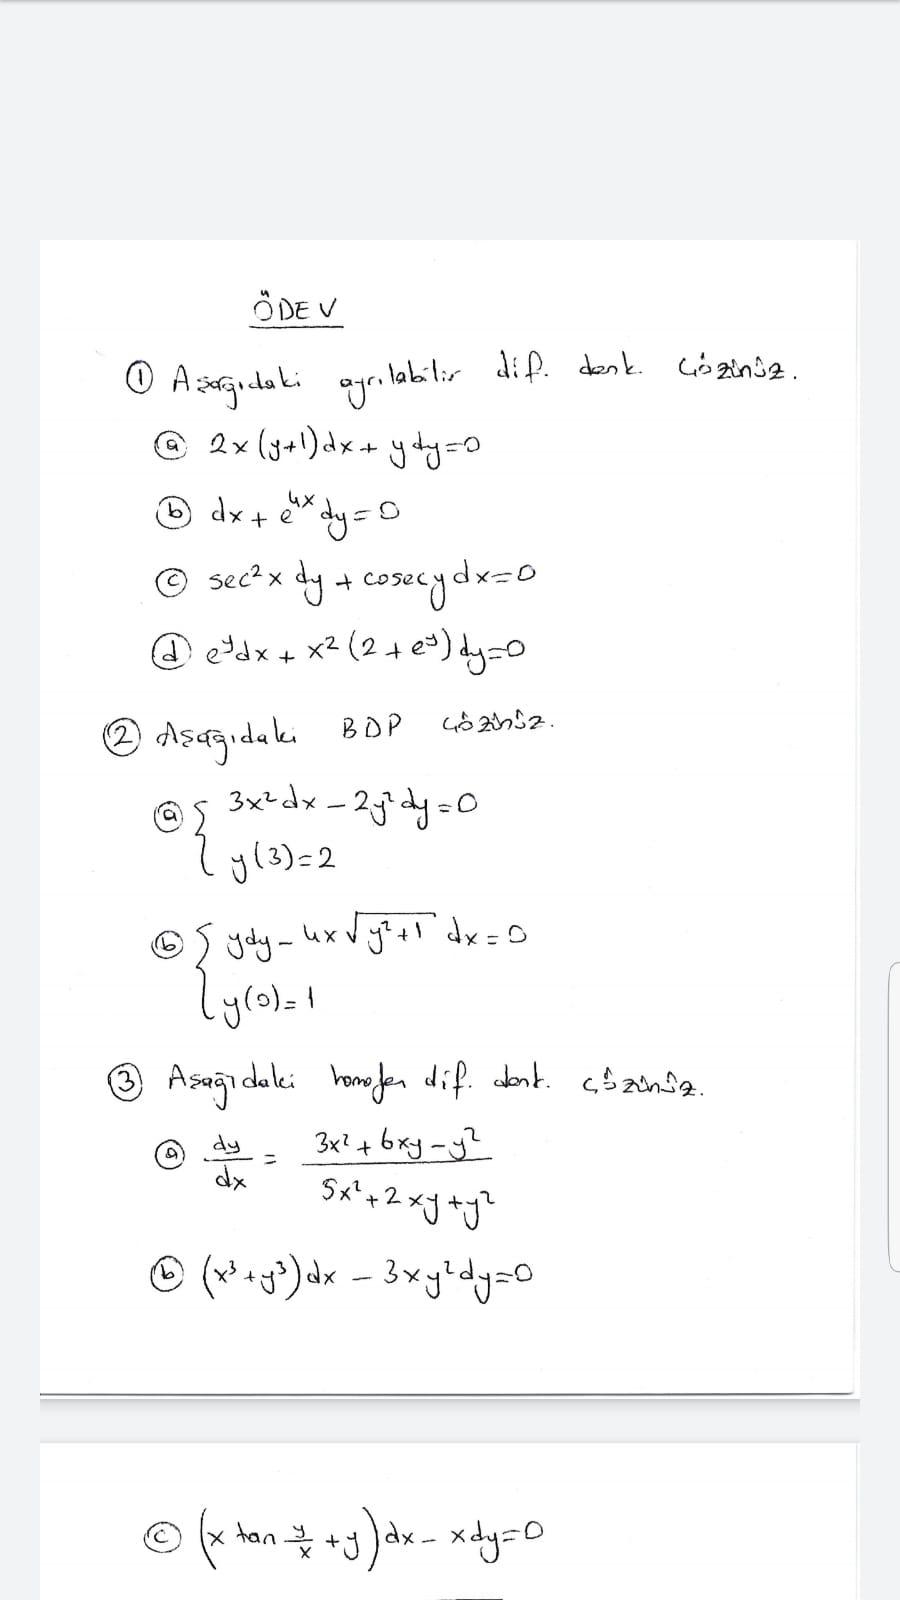 ÖDEV
① Aşağıdaki ayrılabilir dif. denk. çözünüz.
ⓐ 2x(y+1)dx + ydy=0
ⓑ dx + e^{4x} dy = 0
ⓒ sec²x dy + cosecy dx=0
ⓓ e^y dx + x²(2+e^y)dy=0
② Aşağıdaki BDP çözünüz.
ⓐ { 3x²dx - 2y²dy=0
y(3)=2
ⓑ { ydy - 4x√(y²+1) dx=0
y(0)=1
③ Aşağıdaki homojen dif. denk. çözünüz.
ⓐ dy/dx = (3x²+6xy-y²)/(5x²+2xy+y²)
ⓑ (x³+y³)dx - 3xy²dy=0
ⓒ (x tan y/x + y)dx - xdy=0